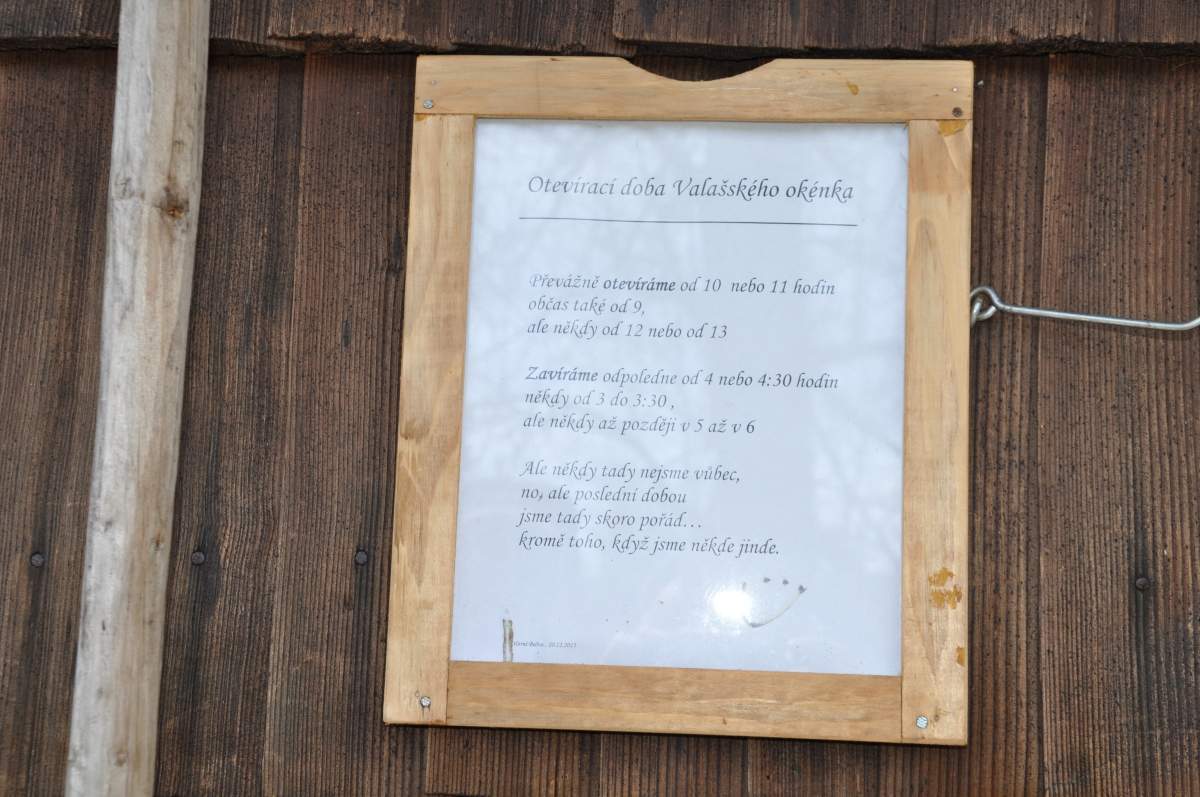 Otevírací doba Valašského okénka
Převážně otevíráme od 10 nebo 11 hodin
občas také od 9,
ale někdy od 12 nebo od 13
Zavíráme odpoledne od 4 nebo 4:30 hodin
někdy od 3 do 3:30 ,
ale někdy až později v 5 až v 6
Ale někdy tady nejsme vůbec,
no, ale poslední dobou
jsme tady skoro pořád...
kromě toho, když jsme někde jinde.